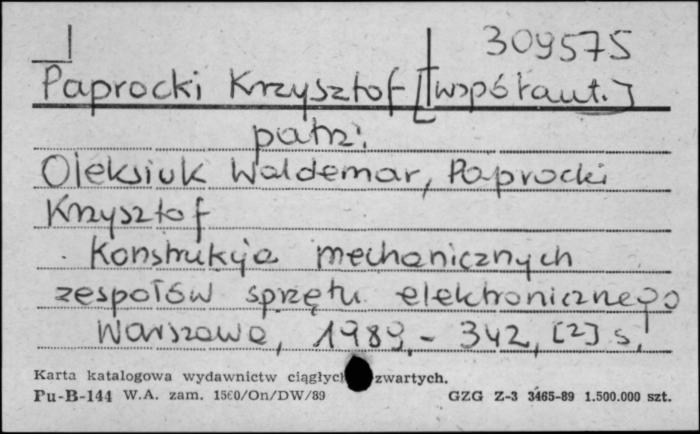 309575
Paprocki Krzysztof [współaut.]
patrz:
Oleksiuk Waldemar, Paprocki
Krzysztof
Konstrukcja mechanicznych
zespołów sprzętu elektronicznego
Warszawa, 1989, - 342, [2] s.
Karta katalogowa wydawnictw ciągłyc zwartych.
Pu-B-144 W.A. zam. 1560/On/DW/89 GZG Z-3 3465-89 1.500.000 szt.